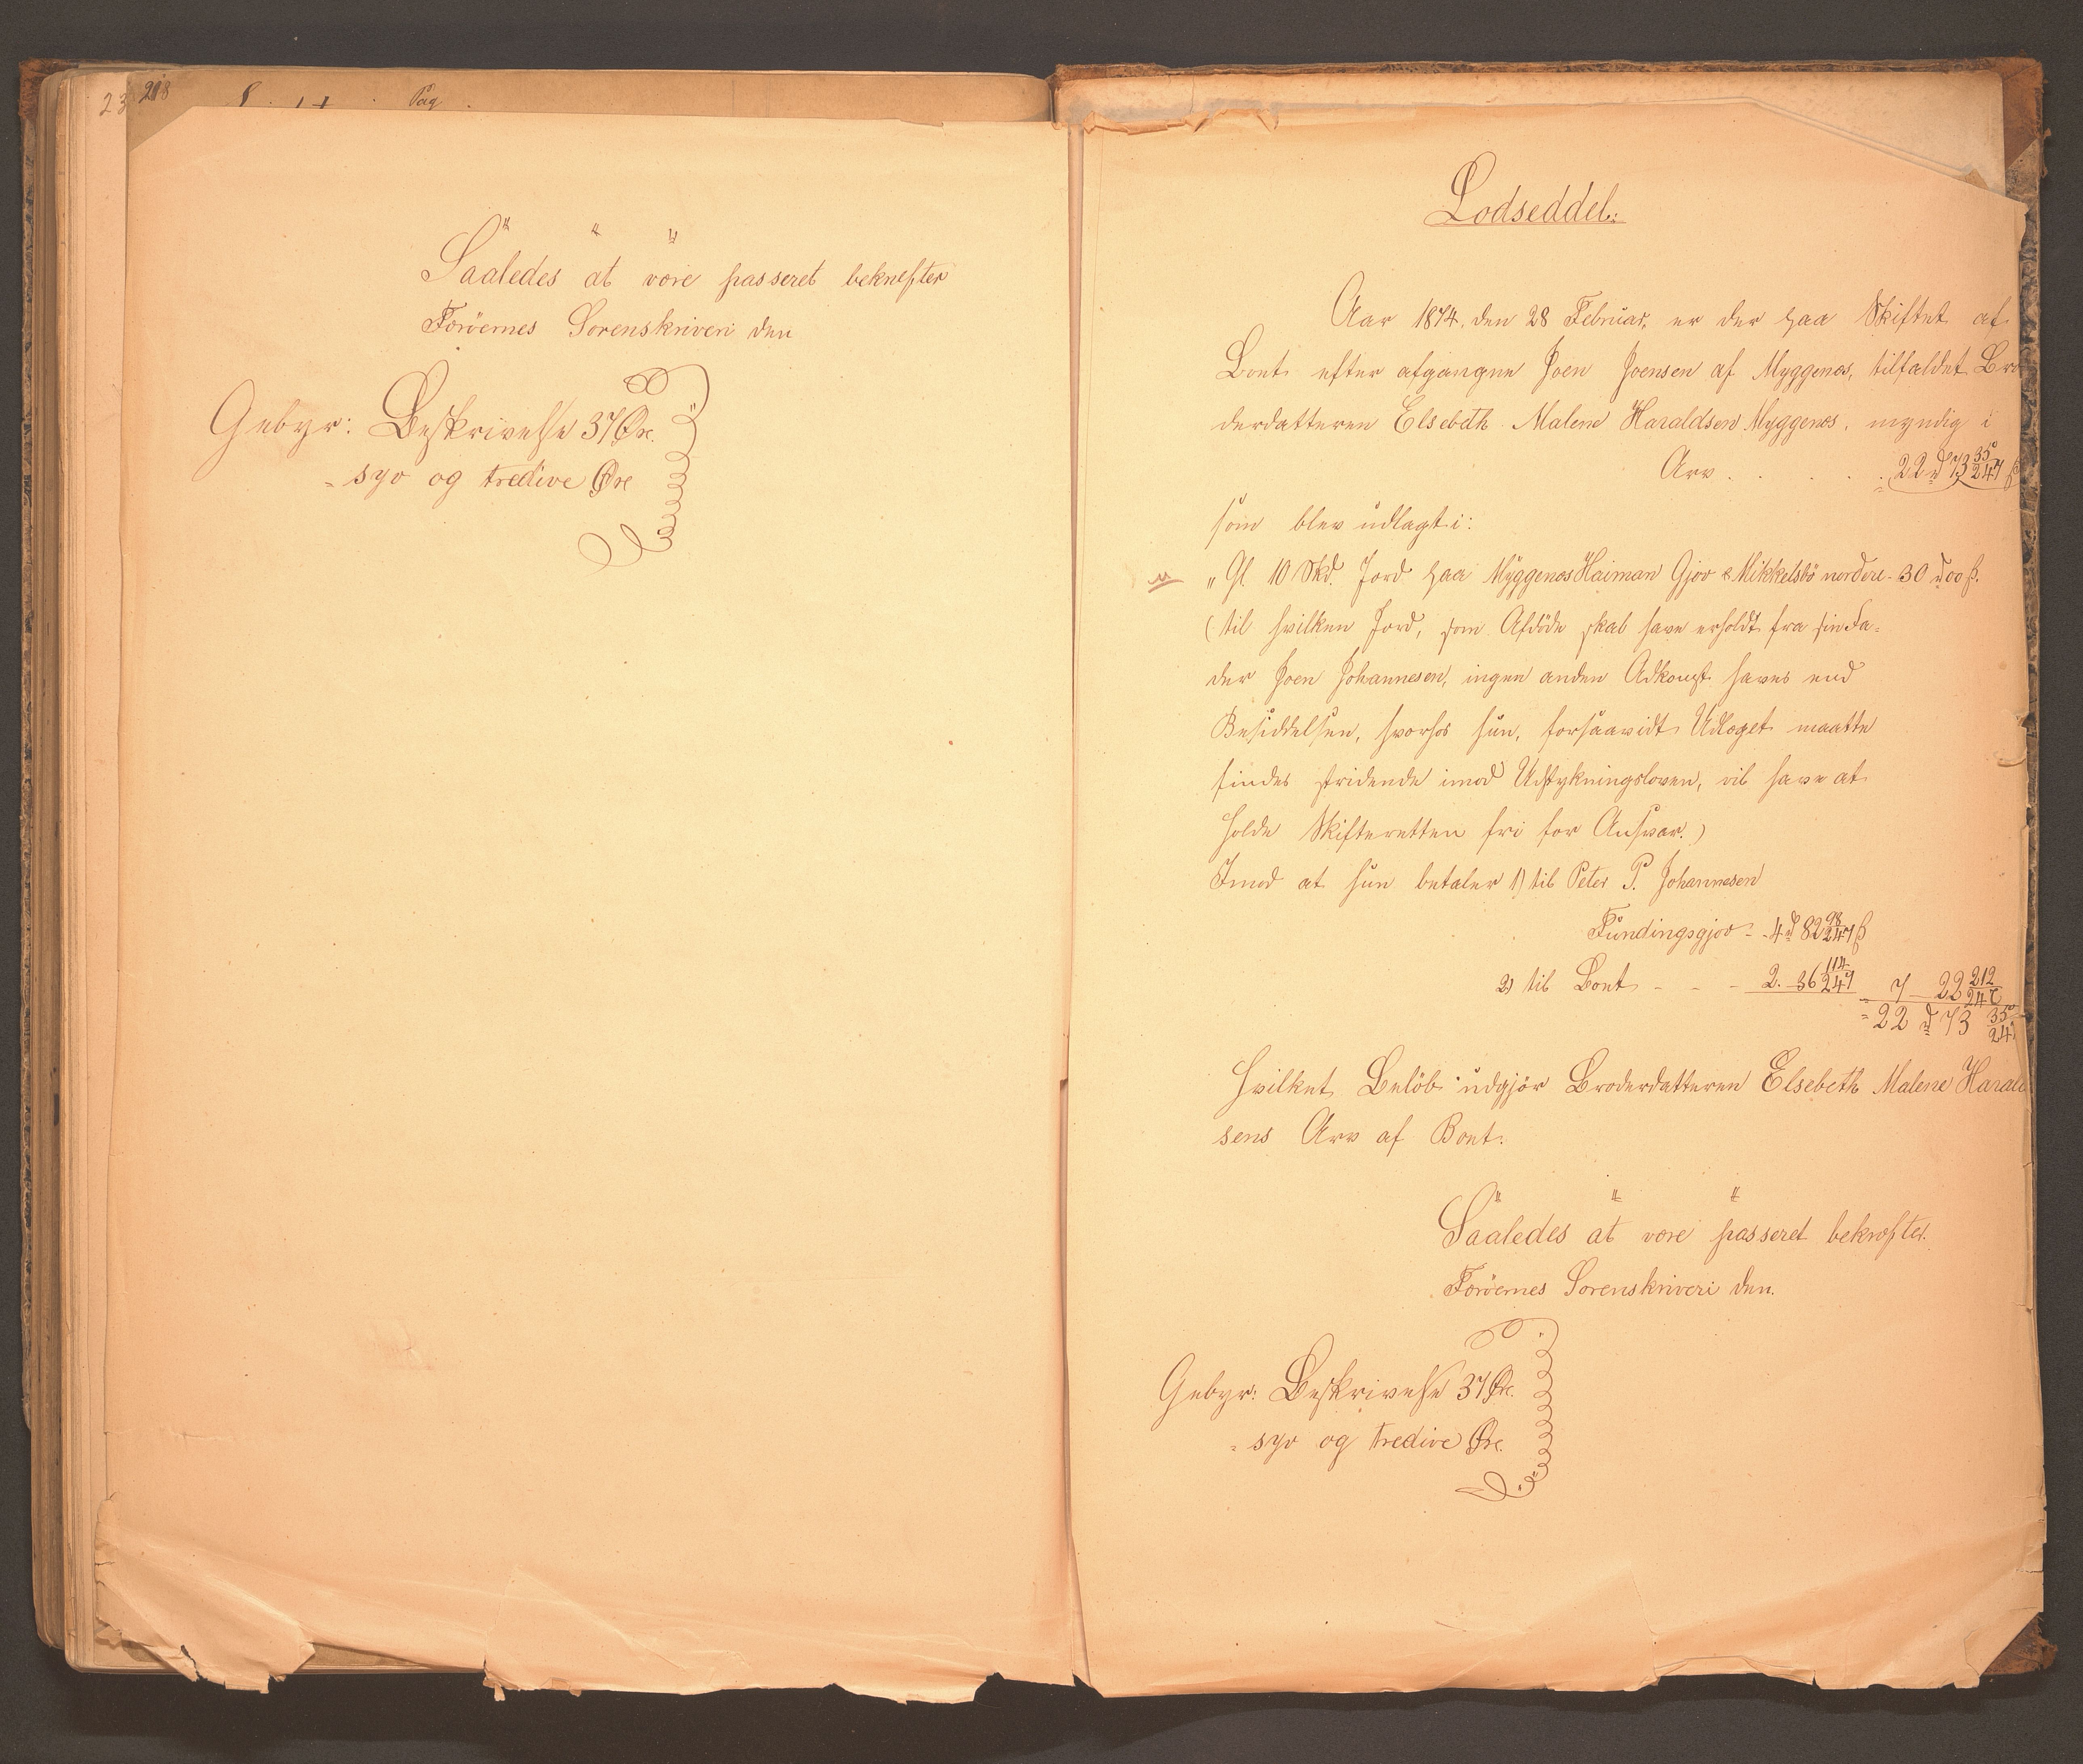 218
Pag
Saaledes at være passeret bekræfter
Færöernes Sorenskriveri den
Gebyr: Beskrivelse 37 Øre.
= syv og tredive Øre
Lodseddel:
Aar 1874, den 28 Februar, er der paa Skiftet af
Boet efter afgangne Joen Joensen af Myggenæs, tilfaldet Bro
derdatteren Elsebeth Malene Haraldsen Myggenæs, myndig i
Arv . . . . . 22 rd 73 35/247 ß
som blev udlagt i:
"Gl. 10 Skd. Jord paa Myggenæs Haiman Gjov & Mikkelsbö nordere - 30 rd 00 ß.
(til hvilken Jord, som Afdöde skal have erholdt fra sin Fa-
der Joen Johannesen, ingen anden Adkomst haves end
Besiddelsen, hvorhos hun, forsaavidt Udlæget maatte
findes stridende imod Udstykningsloven, vil have at
holde Skifteretten fri for Ansvar.)
Imod at hun betaler 1) til Peter P. Johannesen
Fundingsgjov - - 4 rd 82 98/247 ß
2) til Boet - - - 2. 36 114/247 7 22 212/247
= 22 rd 73 35/24
hvilket Belöb udgjör Broderdatteren Elsebeth Malene Harald
sens Arv af Boet.
Saaledes at være passeret bekræfter
Færöernes Sorenskriveri den.
Gebyr: Beskrivelse 37 Øre.
= syv og tredive Øre.